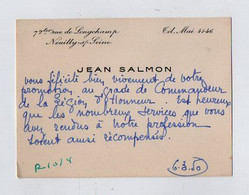 72bis rue de Longchamp
Neuilly s/ Seine
Tél. Mai 41-46
JEAN SALMON
vous félicite bien vivement de votre
promotion au grade de Commandeur
de la Légion d'Honneur. Est heureux
que les nombreux services que vous
avez rendus à notre profession
soient ainsi récompensés.
6.3.50